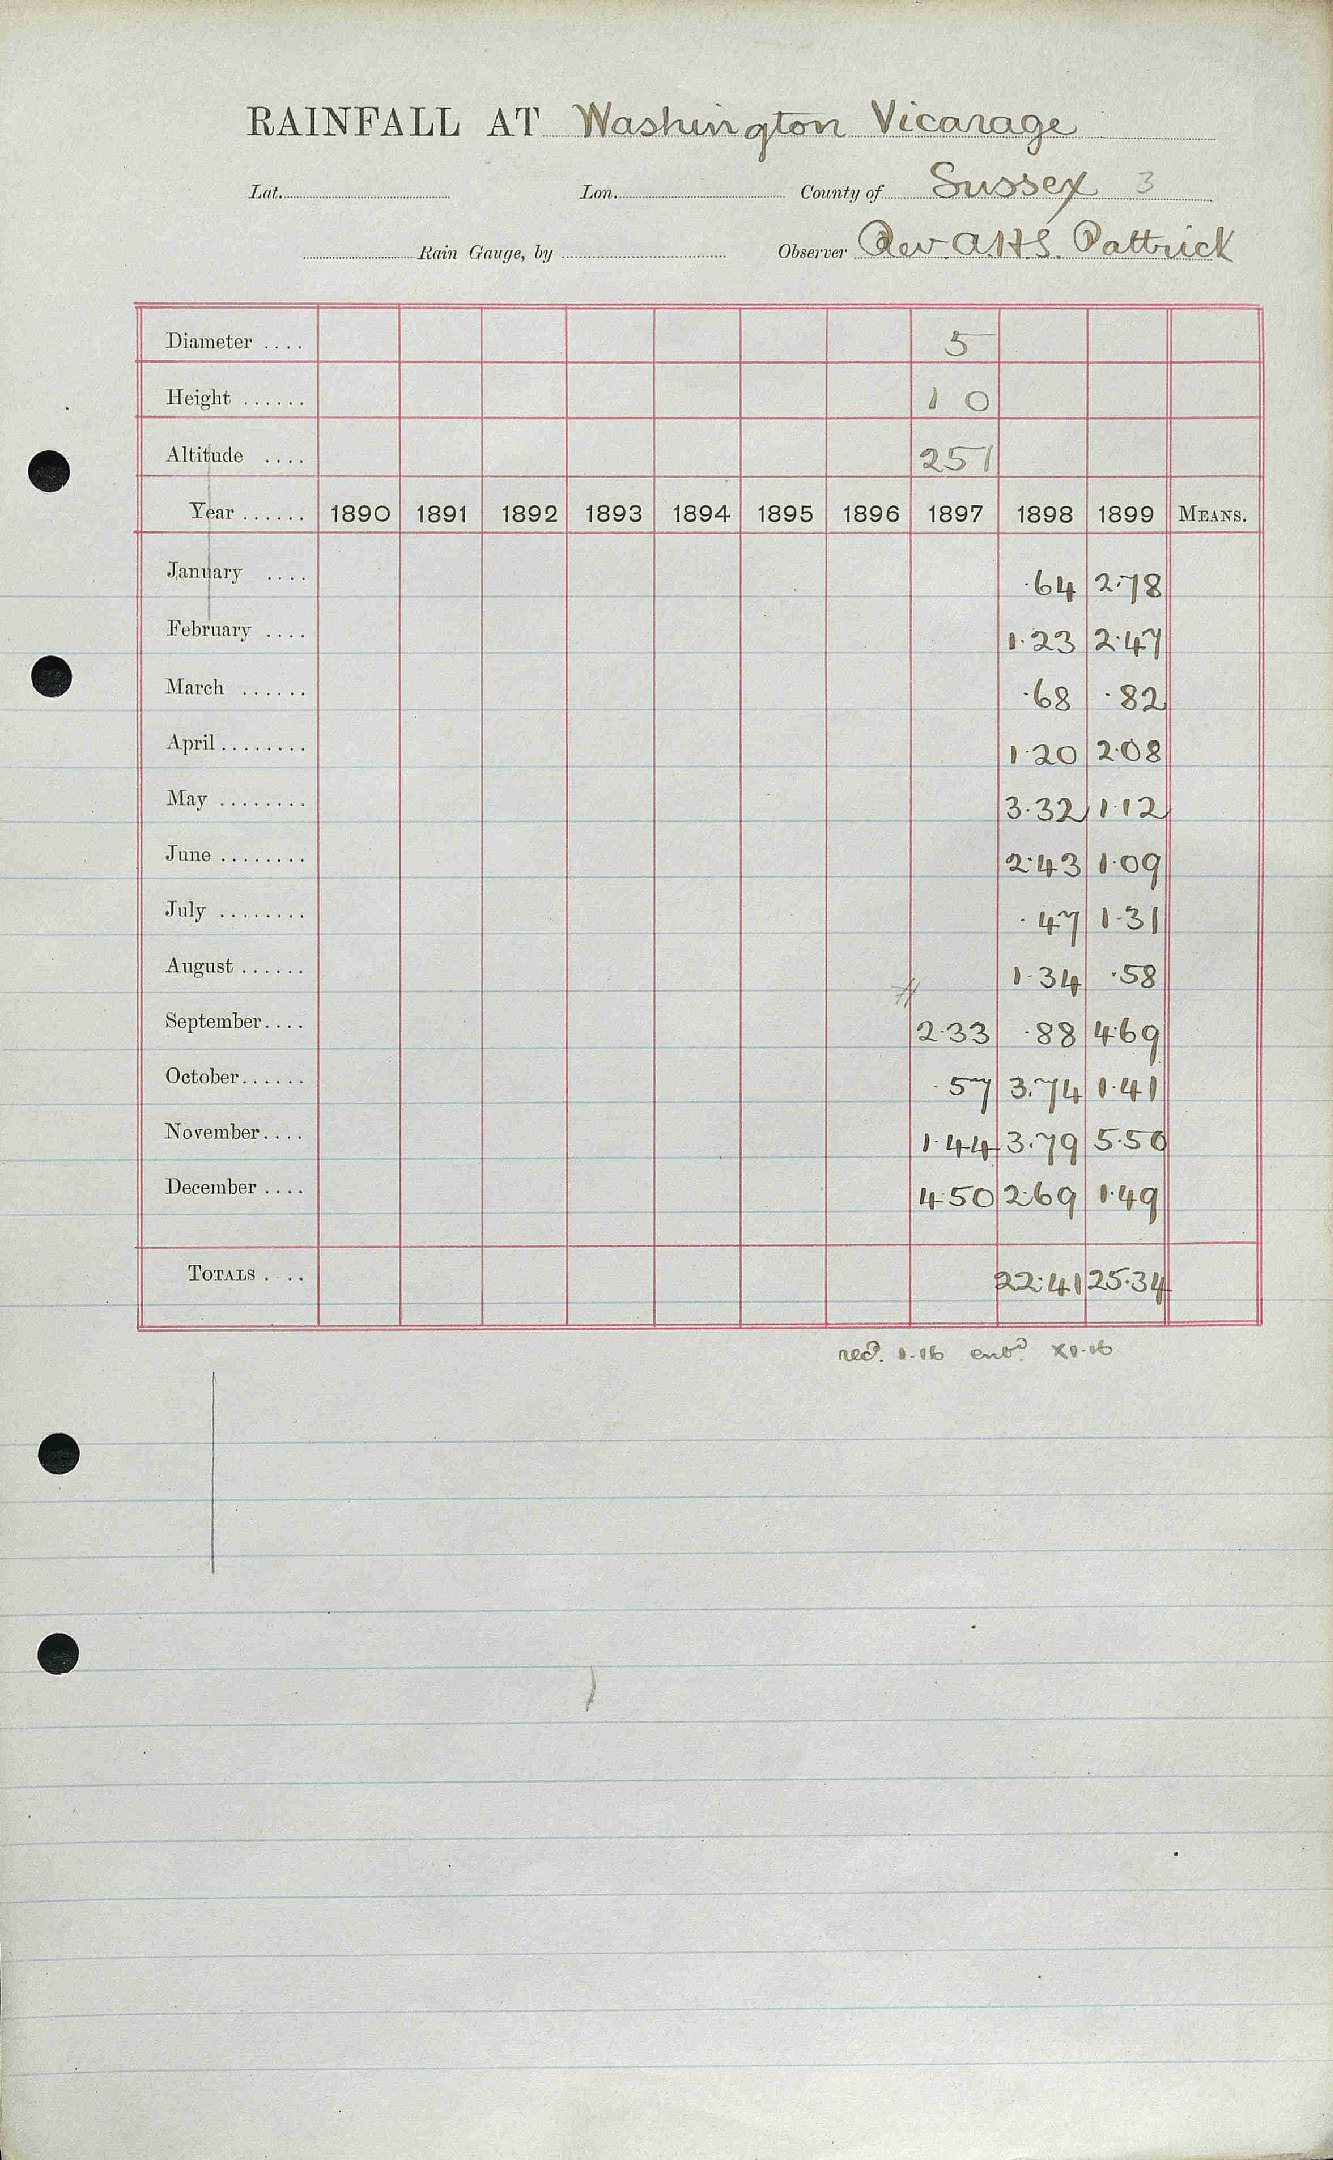 RAINFALL AT Washington Vicarage
Lat. Lon. County of Sussex 3
Rain Gauge, by Observer Rev A.H.S. Pattrick
Diameter .... 5
Height ...... 1 0
Altitude .... 251
Year ...... 1890 1891 1892 1893 1894 1895 1896 1897 1898 1899 MEANS.
January .... ·64 2·78
February .... 1·23 2·47
March ...... ·68 ·82
April ........ 1·20 2·08
May ........ 3·32 1·12
June ........ 2·43 1·09
July ........ ·47 1·31
August ...... 1·34 ·58
September.... 2·33 ·88 4·69
October...... ·57 3·74 1·41
November.... 1·44 3·79 5·50
December .... 4·50 2·69 1·49
TOTALS .... 22·41 25·34
recd. 1·16 entd. X1·16